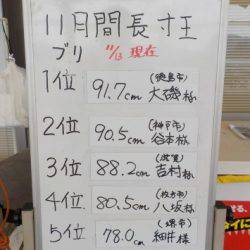 11月間長寸王
ブリ 11/13 現在
1位 91.7cm (徳島市) 大磯様
2位 90.5cm (神戸市) 谷本様
3位 88.2cm (滋賀) 吉村様
4位 80.5cm (枚方市) 八坂様
5位 78.0cm (堺市) 細井様